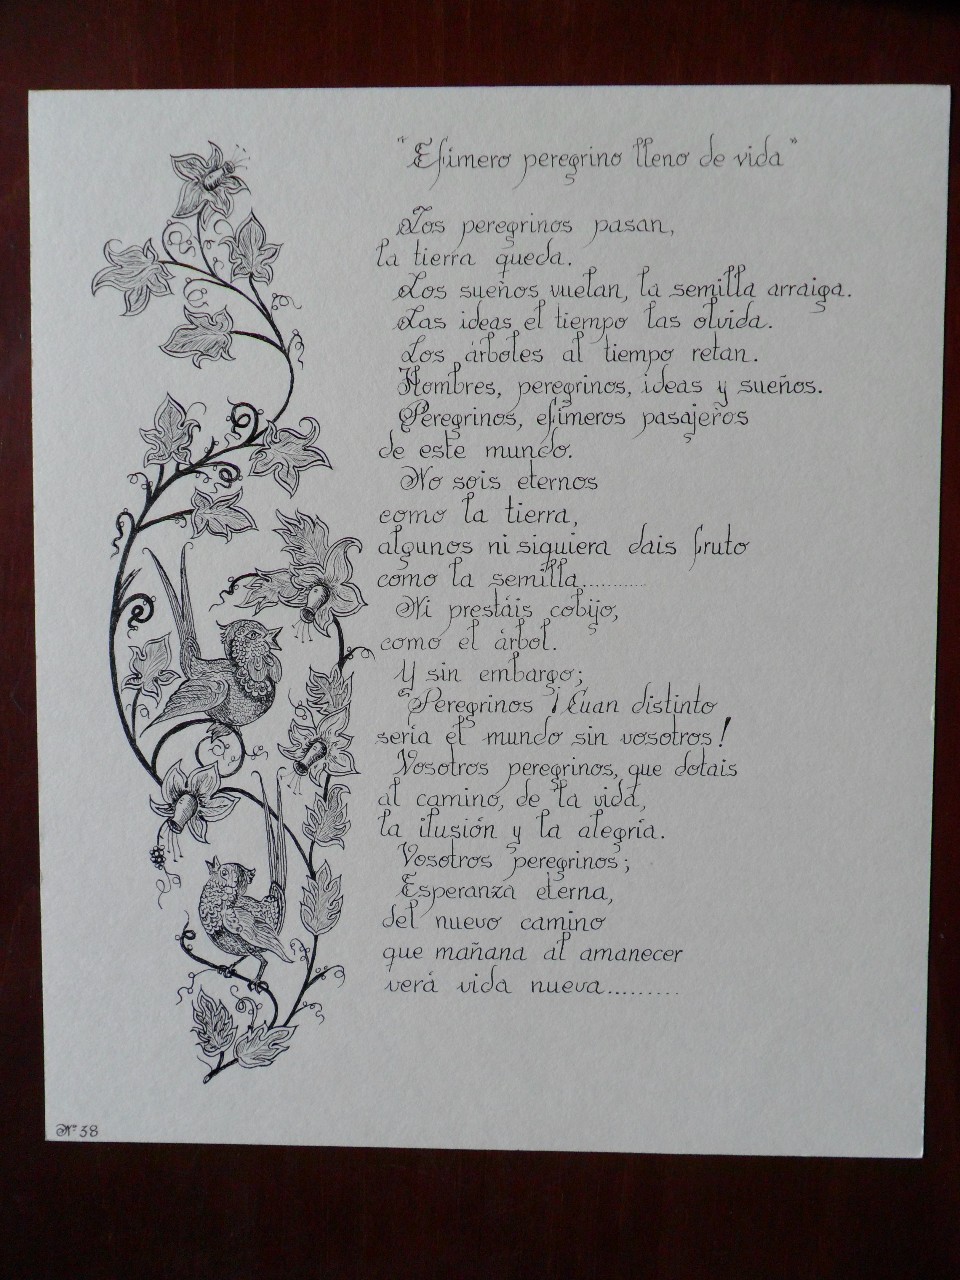 "Efímero peregrino lleno de vida"
Los peregrinos pasan,
la tierra queda.
Los sueños vuelan, la semilla arraiga.
Las ideas el tiempo las olvida.
Los árboles al tiempo retan.
Hombres, peregrinos, ideas y sueños.
Peregrinos, efímeros pasajeros
de este mundo.
No sois eternos
como la tierra,
algunos ni siquiera dais fruto
como la semilla............
Ni prestáis cobijo,
como el árbol.
Y sin embargo;
"Peregrinos ¡Cuan distinto
sería el mundo sin vosotros!
Vosotros peregrinos, que dotais
al camino, de la vida,
la ilusión y la alegría.
Vosotros peregrinos;
Esperanza eterna,
del nuevo camino
que mañana al amanecer
verá vida nueva.........
Nº 38